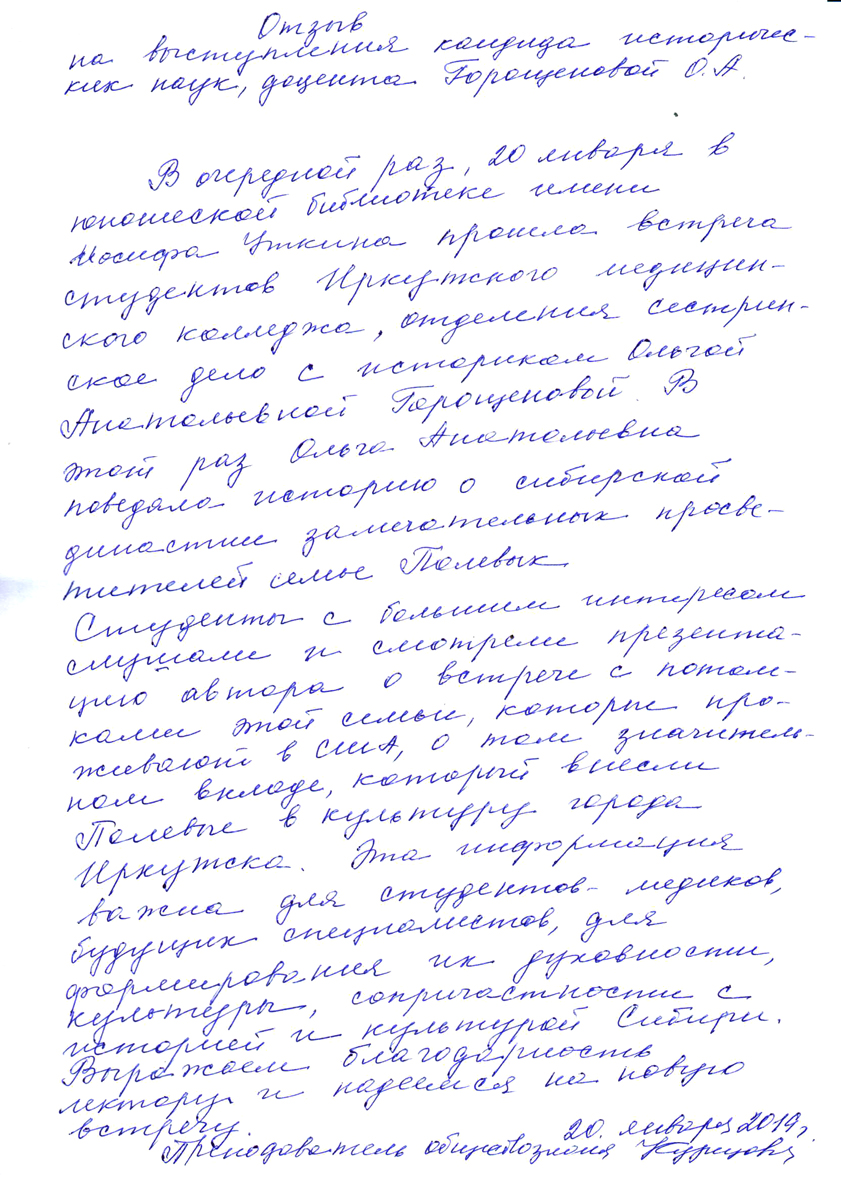 Отзыв
на выступления кандида историчес-
ких наук, доцента Горощеновой О.А.
В очередной раз, 20 января в
юношеской библиотеке имени
Иосифа Уткина прошла встреча
студентов Иркутского медицин-
ского колледжа, отделения сестрин-
ское дело с историком Ольгой
Анатольевной Горощеновой. В
этот раз Ольга Анатольевна
поведала историю о сибирской
династии замечательных просве-
тителей семье Полевых
Студенты с большим интересом
слушали и смотрели презента-
цию автора о встрече с потом-
ками этой семьи, которые про-
живают в США, о том значитель-
ном вкладе, который внесли
Полевые в культуру города
Иркутска. Эта информация
важна для студентов-медиков,
будущих специалистов, для
формирования их духовности,
культуры, сопричастности с
историей и культурой Сибири.
Выражаем благодарность
лектору и надеемся на новую
встречу.
20. января 2019г.
Преподаватель обществознания